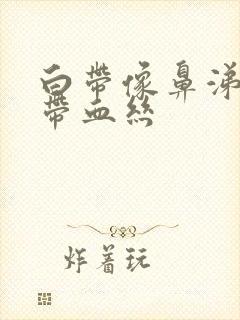 白帶像鼻涕
帶血絲
炸着玩